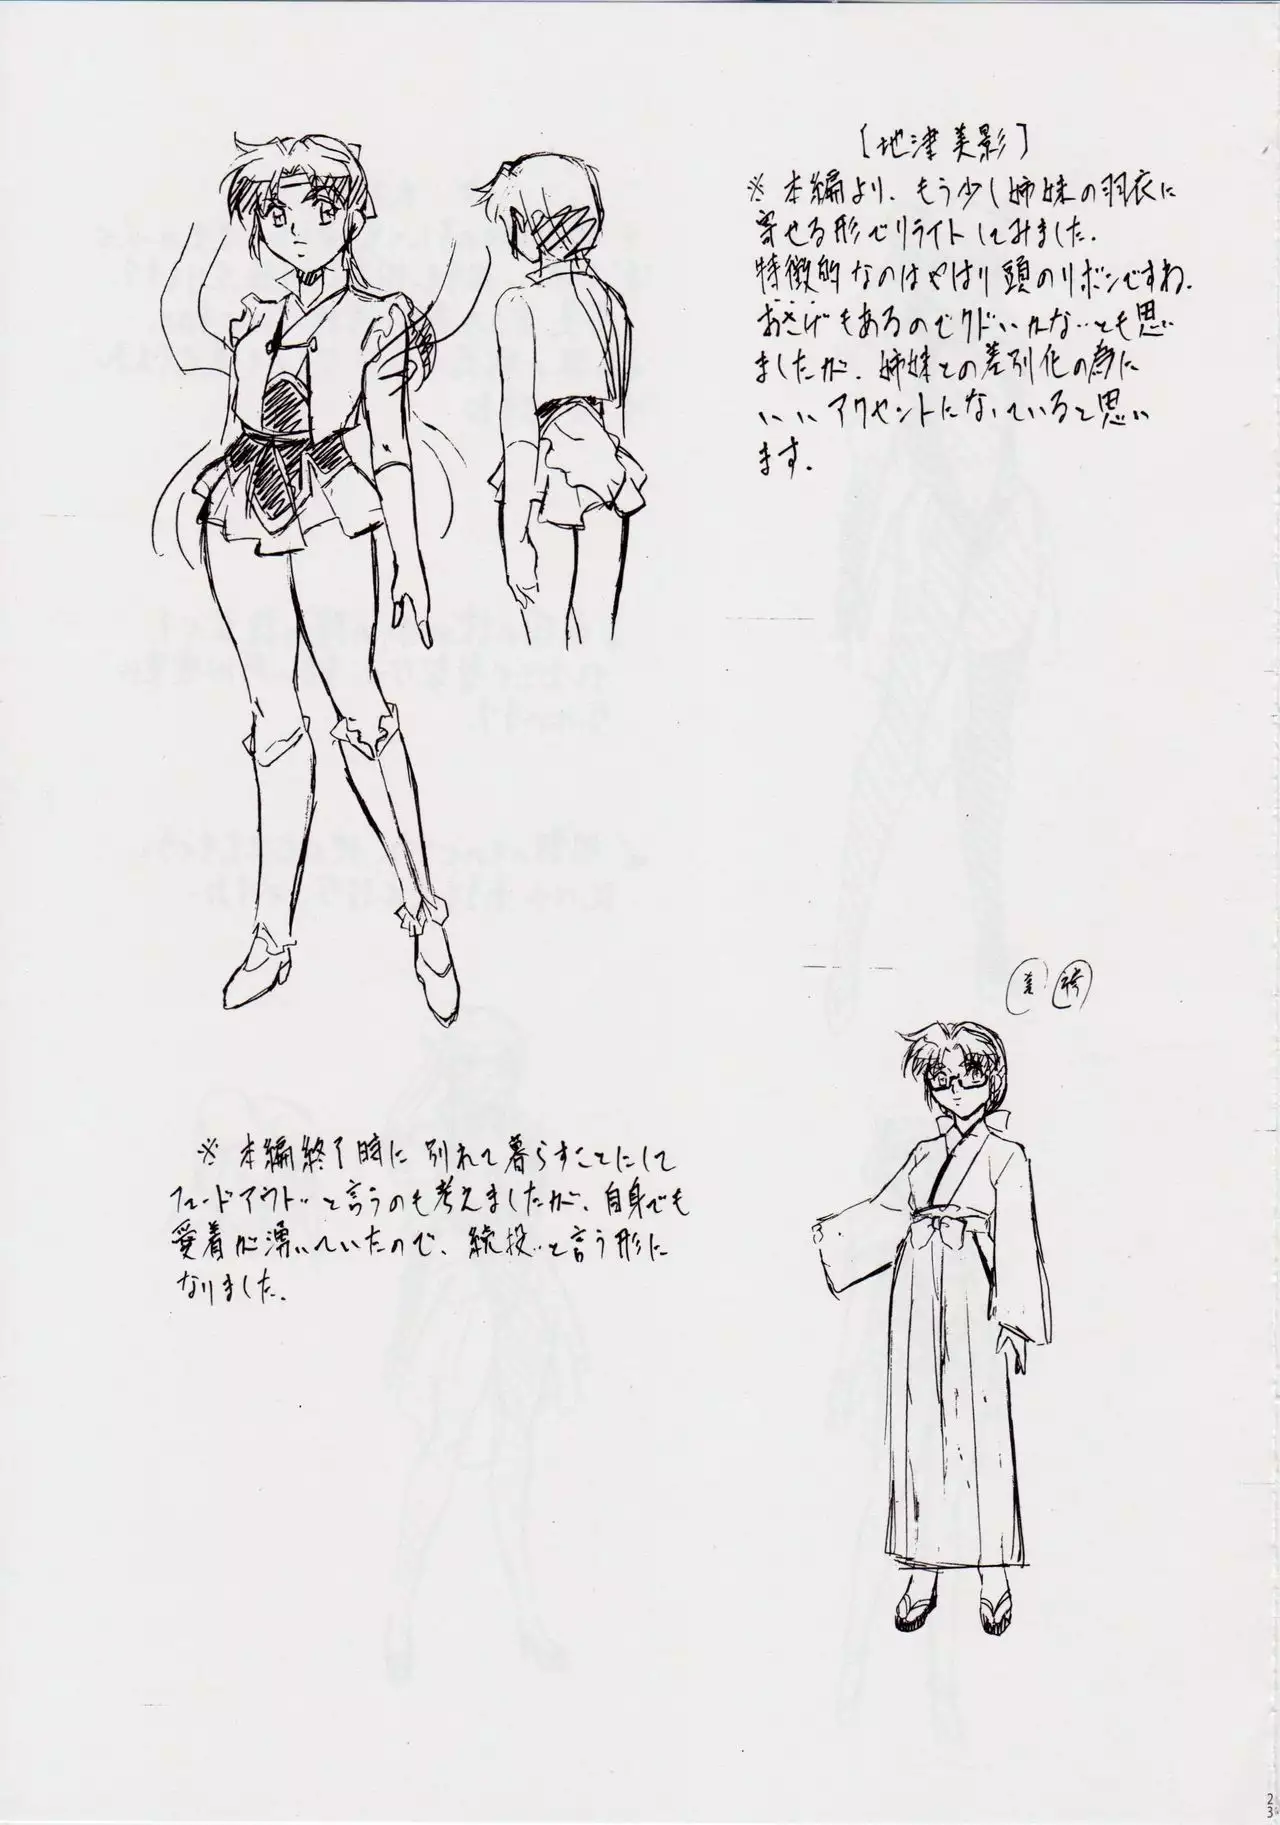 【地津美影】
※本編より、もう少し姉妹の羽衣に
寄せる形でリライトしてみました.
特徴的なのはやはり頭のリボンですね.
おさげもあるのでクドいかな…とも思い
ましたが、姉妹との差別化の為に
いいアクセントになっていると思い
ます.
美 袴
※本編終了時に別れて暮らすことにして
フェードアウト…と言うのも考えましたが、自身でも
愛着が湧いていたので、続投…と言う形に
なりました.
23